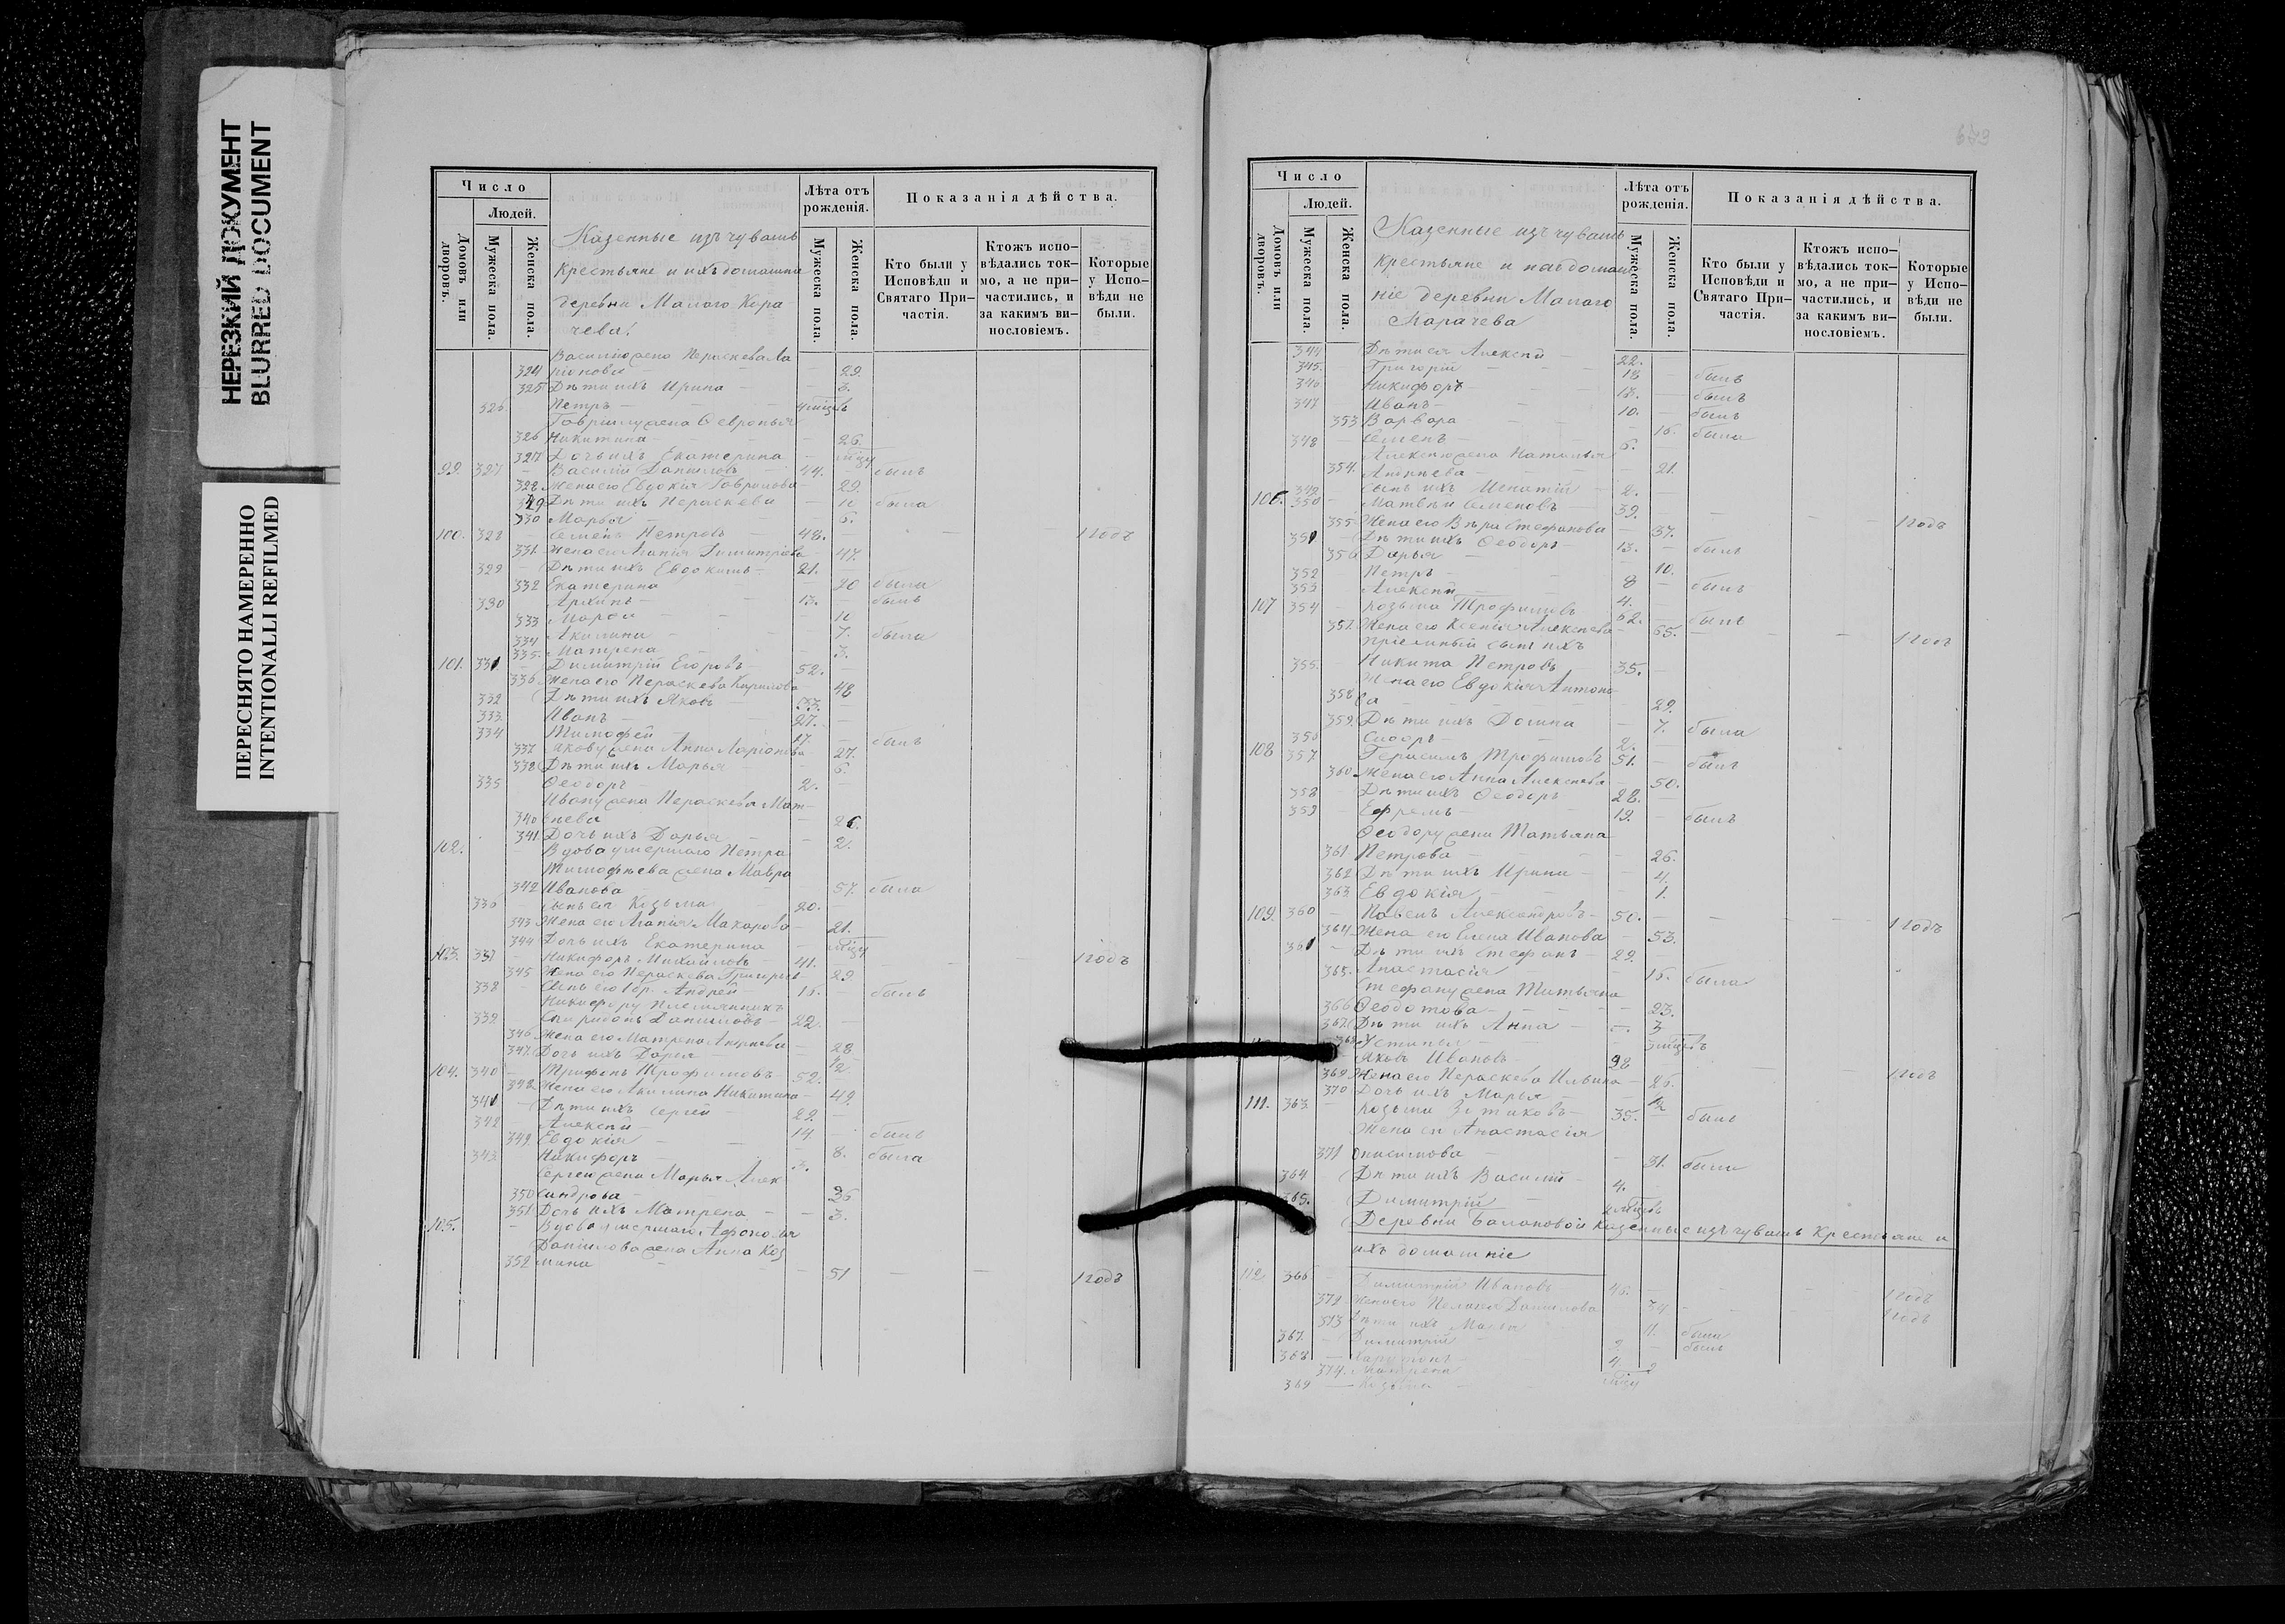 НЕРЕЗКИЙ ДОКУМЕНТ
BLURRED DOCUMENT
ПЕРЕСНЯТО НАМЕРЕННО
INTENTIONALLI REFILMED
Число
Людей.
Домовъ или дворовъ.
Мужеска пола.
Женска пола.
Казенные изъ чувашъ
крестьяне и ихъ домашніе
деревни Малаго Кара
чева.
Лѣта отъ рожденія.
Мужеска пола.
Женска пола.
Показанія дѣйства.
Кто были у Исповѣди и Святаго Причастія.
Ктожъ исповѣдались токмо, а не причастились, и за какимъ винословіемъ.
Которые у Исповѣди не были.
Василію жена Параскева Ла
324 ріонова 29.
325 Дѣти ихъ Ирина 3.
326 Петръ
Гаврилу жена Февронья
326 Никитина 26.
327 Дочь ихъ Екатерина
99. 327 Василій Даниловъ 44. былъ
328 Жена его Евдокія Гаврилова 29.
329 Дѣти ихъ Параскева была
330 Марья 6.
100. 328 Семенъ Петровъ 48. 1 годъ
331 Жена его Агапія Димитріева 47.
329 Дѣти ихъ Евдокимъ 21.
332 Екатерина 20 была
330 Архипъ 13. былъ
333 Марфа
334 Акилина 7. была
335. Матрена 3.
101. 331 Димитрій Егоровъ 52.
336 Жена его Параскева Кирилова 48
332 Дѣти ихъ Яковъ
333. Иванъ 27.
334 Тимофей 17. былъ
337 Якову жена Анна Ларіонова 27.
338 Дѣти ихъ Марья 6.
335 Феодоръ 2.
Ивану жена Параскева Мат
340 веева 26.
341. Дочь ихъ Дарья 2.
102. Вдова умершаго Петра
Тимофеева жена Мавра
342 Иванова 57. была
336 Сынъ ея Козьма 20.
343 Жена его Агапія Макарова 21.
344 Дочь ихъ Екатерина
103. 337 Никифоръ Михайловъ 41. 1 годъ
345 Жена его Параскева Григорьев 29
338 Сынъ его 1 бр. Андрей 15. былъ
Никифору племянникъ
339 Спиридонъ Даниловъ 22.
346 Жена его Матрена Андреева 28
347. Дочь ихъ Дарья 1/2
104. 340 Трифонъ Трофимовъ 52.
348 Жена его Акилина Никитина 49.
341 Дѣти ихъ Сергей 29.
342 Алексѣй 14. былъ
349. Евдокія 8. была
343. Никифоръ 3.
Сергею жена Марья Алек
350 сандрова 26
351 Дочь ихъ Матрена 3.
105. Вдова умершаго Афонасья
Данилова жена Анна Коз
352 мина 51 1 годъ
Число
Людей.
Домовъ или дворовъ.
Мужеска пола.
Женска пола.
Казенные изъ чувашъ
крестьяне и ихъ домаш
ніе деревни Малаго
Карачева
Лѣта отъ рожденія.
Мужеска пола.
Женска пола.
Показанія дѣйства.
Кто были у Исповѣди и Святаго Причастія.
Ктожъ исповѣдались токмо, а не причастились, и за какимъ винословіемъ.
Которые у Исповѣди не были.
344 Дѣти ея Алексѣй 22.
345. Григорій 18 былъ
346 Никифоръ 13. былъ
347 Иванъ 10. былъ
353 Варвара 15. была
348 Семенъ 6.
Алексѣю жена Наталья
354. Андреева 21.
349 Сынъ ихъ Игнатій 2.
106. 350 Матвѣй Семеновъ 39. 1 годъ
355 Жена его Вѣра Стефанова 37.
351 Дѣти ихъ Феодоръ 13. былъ
356 Дарья 10.
352 Петръ 8 былъ
353 Алексѣй 4.
107 354 Козьма Трофимовъ 62. былъ
357. Жена его Ксенія Алексѣева 65. 1 годъ
Пріемный сынъ ихъ
355. Никита Петровъ 35.
Жена его Евдокія Антоно
358 ва 29.
359. Дѣти ихъ Домна 7. была
356 Сидоръ 2.
108 357. Герасимъ Трофимовъ 51. былъ
360 Жена его Анна Алексѣева 50.
358 Дѣти ихъ Феодоръ 28.
359 Ефремъ 19. былъ
Феодору жена Татьяна
361 Петрова 26.
362 Дѣти ихъ Ирина 4.
363 Евдокія 1.
109. 360 Павелъ Александровъ 50. 1 годъ
364 Жена его Елена Иванова 53.
361 Дѣти ихъ Стефанъ 29.
365. Анастасія 15. была
Стефану жена Татьяна
366 Феодотова 23.
367. Дѣти ихъ Анна 3
368 Устинья
Яковъ Ивановъ 28
369 Жена его Параскева Ильина 26. 1 годъ
370 Дочь ихъ Марья 1/2
111. 363 Козьма 35. былъ
Жена его Анастасія
371 Онисимова 31. была
364 Дѣти ихъ Василій 4.
365. Димитрій
Деревни Балановой Казенные изъ чувашъ крестьяне и
ихъ домашніе
112 366 Димитрій Ивановъ 1 годъ
372 Жена его Пелагія Данилова 34 1 годъ
373 Дѣти ихъ Марья 11. была
367. Димитрій 9. былъ
368 Харитонъ 4.
374. Матрена 2
369 Козьма